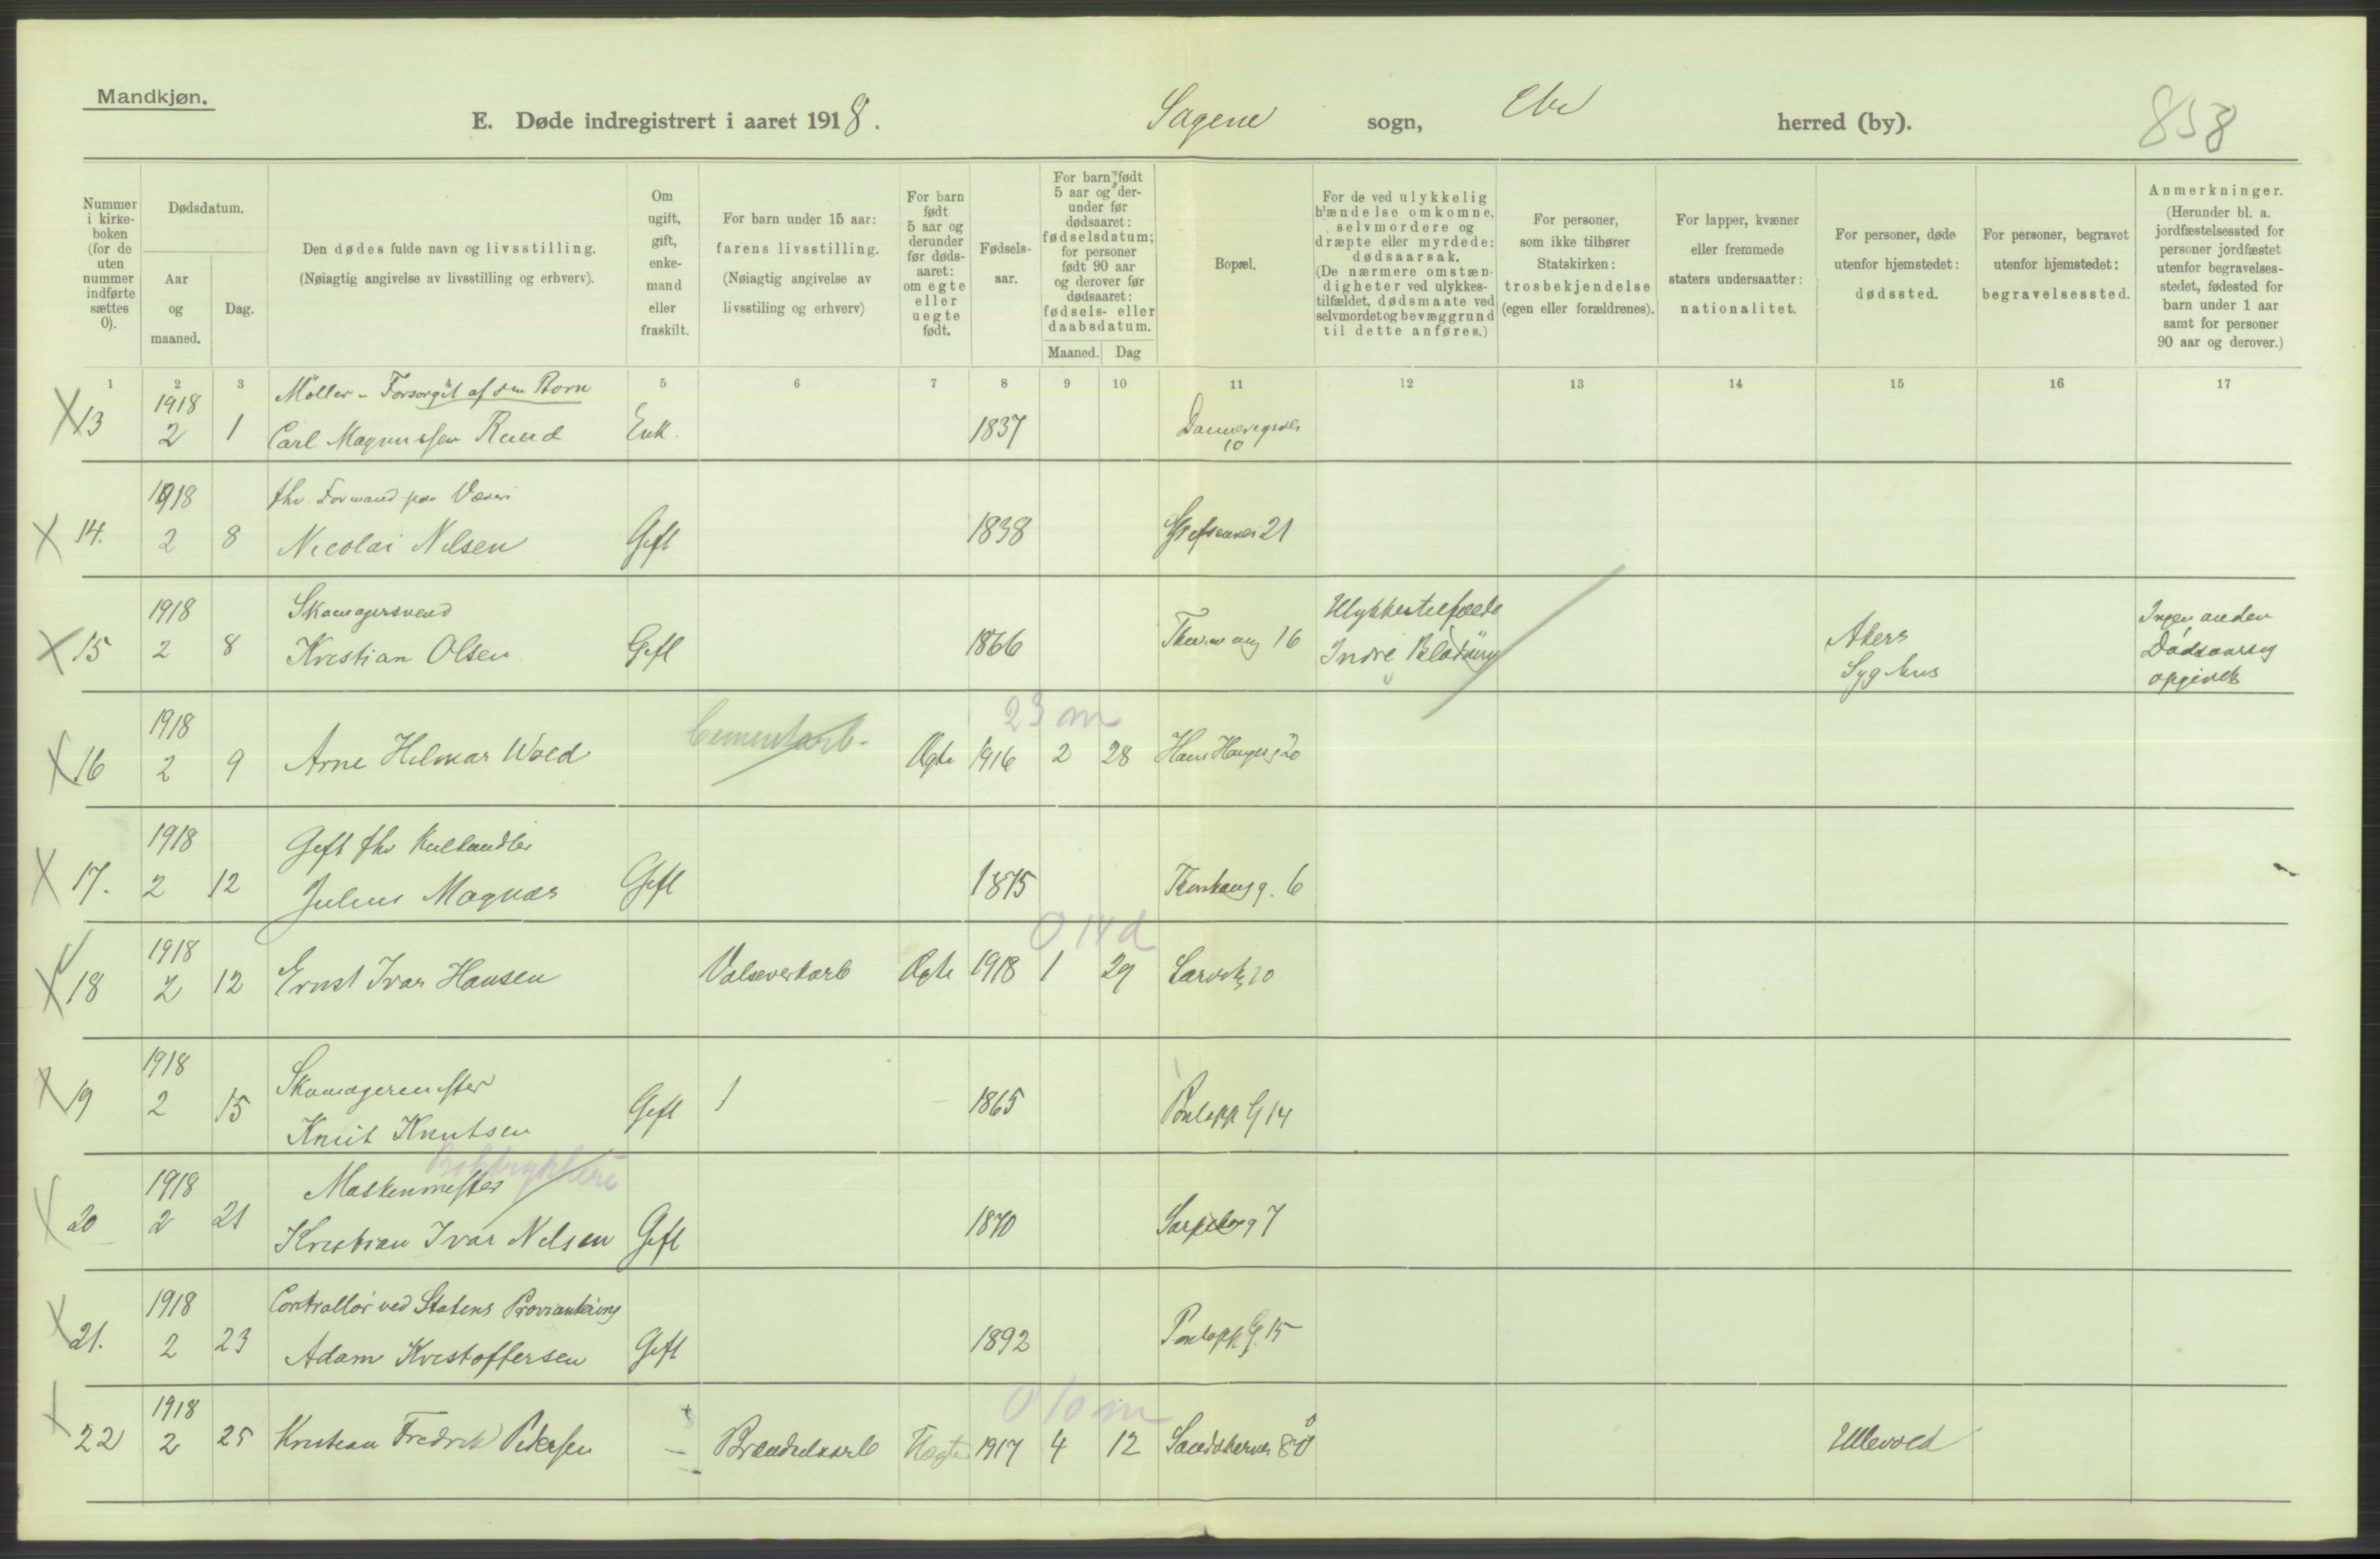 Mandkjøn.
E. Døde indregistrert i aaret 1918.
Sagene sogn, herred (by).
858
Nummer i kirke-boken (for de uten nummer indførte sættes 0).
Dødsdatum.
Aar og maaned.
Dag.
Den dødes fulde navn og livsstilling.
(Nøiagtig angivelse av livsstilling og erhverv).
Om ugift, gift, enke-mand eller fraskilt.
For barn under 15 aar:
farens livsstilling.
(Nøiagtig angivelse av livsstiling og erhverv)
For barn født 5 aar og derunder før døds-aaret: om egte eller uegte født.
Fødsels-aar.
For barn født 5 aar og der-under før dødsaaret: fødselsdatum; for personer født 90 aar og derover før dødsaaret: fødsels- eller daabsdatum.
Maaned. Dag
Bopæl.
For de ved ulykkelig hændelse omkomne, selvmordere og dræpte eller myrdede: dødsaarsak. (De nærmere omstæn-digheter ved ulykkes-tilfældet, dødsmaate ved selvmordet og bevæggrund til dette anføres.)
For personer, som ikke tilhører Statskirken: trosbekjendelse (egen eller forældrenes).
For lapper, kvæner eller fremmede staters undersaatter: nationalitet.
For personer, døde utenfor hjemstedet: dødssted.
For personer, begravet utenfor hjemstedet: begravelsessted.
Anmerkninger.
(Herunder bl. a. jordfæstelsessted for personer jordfæstet utenfor begravelses-stedet, fødested for barn under 1 aar samt for personer 90 aar og derover.)
1 2 3 4 5 6 7 8 9 10 11 12 13 14 15 16 17
1918 Möller - Forsörget af sin Born
X 13 2 1 Carl Magnussen Ruud Enk. 1837 10
1918 fhv. Formand paa Væveri
X 14. 2 8 Nicolai Nilsen Gift 1838 Grefsenvei 21
1918 Skomagersvend Ulykkestilfælde Ingen anden
X 15 2 8 Kristian Olsen Gift 1866 16 Indre Blödning Akers Sygehus Dødsaarsag opgivet
1918 Cementarb. 23 m
X 16 2 9 Arne Hilmar Wold Ægte 1916 2 28 Hans Haugesg 20
1918 Gift fhv Kulhandler
X 17. 2 12 Julius Magnus Gift 1875 6
1918 0 14 d
X 18 2 12 Ernst Ivar Hansen Valseverkarb Ægte 1918 1 29 Larvikg 20
1918 Skomagermester
X 19 2 15 Knut Knutsen Gift 1 1865 14
Boktrykkeri
1918 Maskinmester
X 20 2 21 Kristian Ivar Nilsen Gift 1870 Sarpsborgg 7
1918 Controllör ved Statens Proviantering
X 21. 2 23 Adam Kristoffersen Gift 1892 15
1918 0 10 m
X 22 2 25 Kristian Fredrik Pedersen Uægte 1917 4 12 Sandakerveien 80 Ullevold